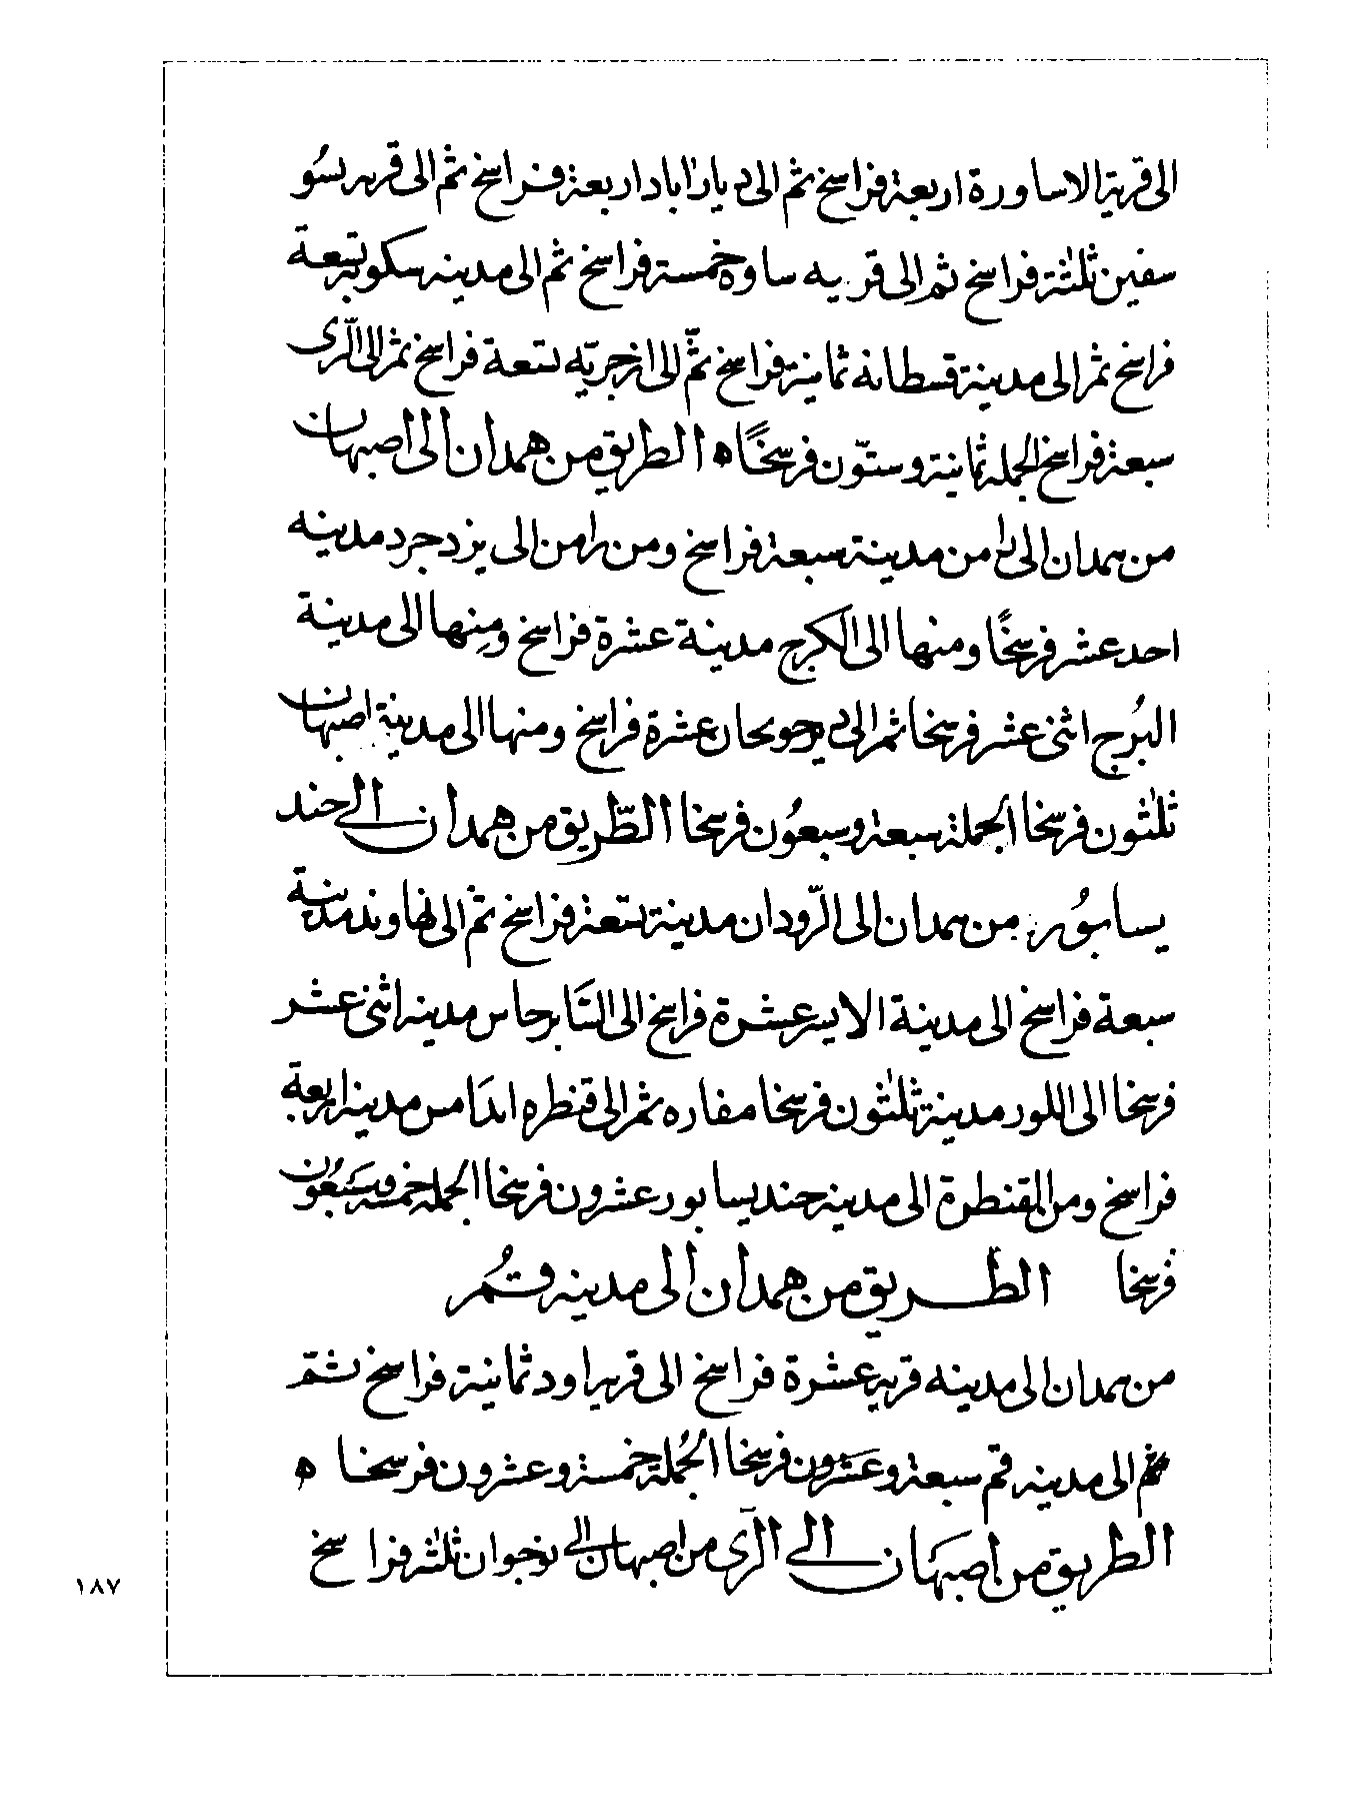 الى قرية الاساورة اربعة فراسخ ثم الى ديار اباد اربعة فراسخ ثم الى قريه بسُو
سفين ثلثة فراسخ ثم الى قريه ساوه خمسة فراسخ ثم الى مدينه سكويه تسعة
فراسخ ثم الى مدينة قسطانه ثمانية فراسخ ثمّ الى ازجريّه تسعة فراسخ ثم الى الرّى
سبعة فراسخ الجمله ثمانية وستّون فرسخًا ه الطريق من همدان الى اصبهان
من همدان الى رامن مدينة سبعة فراسخ ومن رامن الى يزدجرد مدينه
احد عشر فرسخًا ومنها الى الكرج مدينة عشرة فراسخ ومنها الى مدينة
البُرج اثنى عشر فرسخا ثم الى عشرة فراسخ ومنها الى مدينة اصبهان
ثلثون فرسخا الجملة سبعة وسبعُون فرسخا الطّريق من همدان الى جند
يسابُور من همدان الى الرّودان مدينة تسعة فراسخ ثم الى نهاوند مدينة
سبعة فراسخ الى مدينة الايسر عشرة فراسخ الى مدينه اثنى عشر
فرسخا الى اللور مدينة ثلثون فرسخا مفاره ثم الى قنطره اندَامس مدينه اربعة
فراسخ ومن القنطرة الى مدينه جنديسابور عشرون فرسخا الجمله خمسة وسَبعُون
فرسخا الطريق من همدان الى مدينه قُم
من همدان الى مدينه قريه عشرة فراسخ الى قريه اود ثمانية فراسخ
ثم الى مدينه قم سبعة وعَشرون فرسخا الجُملة خمسة وعشرون فرسخا ه
الطريق من اصبهَان الى الرّى من اصبهان الى ثلثه فراسخ
١٨٧